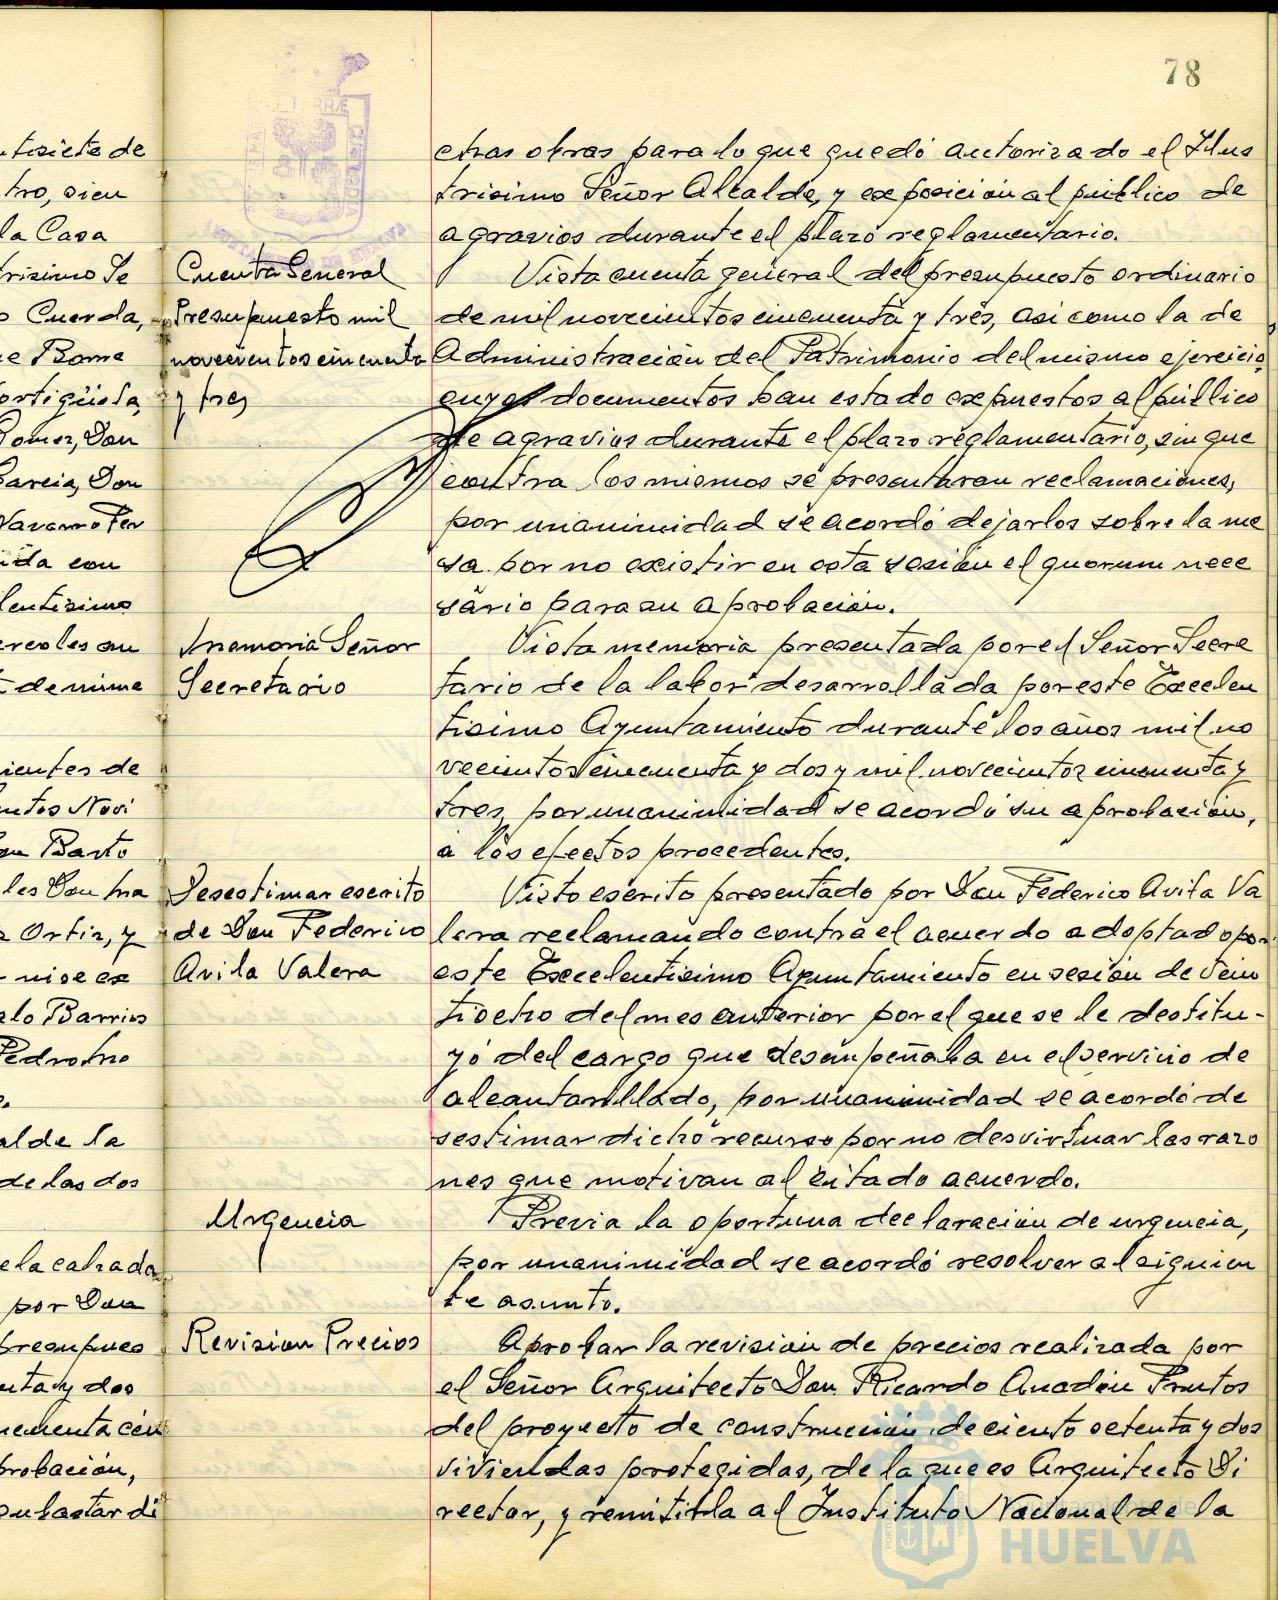 78
tisiete de
tro, sien
la Casa
trisimo Se
o Cuerda,
e Rome
ortigüela,
Gomez, Don
Garcia, Don
Navarro Fer
ida con
lentisimo
ercoles an
t de nume
ientes de
ntos Novi
an Barto
les Don Ma
z Ortiz, y
nise ex
elo Barrios
Pedro
alde la
de las dos
e la calzada
por Don
presupues
nta y dos
cuenta cén
probación,
subastar di
Cuenta General
Presupuesto mil
novecientos cincuenta
y tres
Memoria Señor
Secretario
Desestimar escrito
de Don Federico
Avila Valera
Urgencia
Revision Precios
chas obras para lo que quedó autorizado el Ilus
trisimo Señor Alcalde, y exposición al público de
agravios durante el plazo reglamentario.
Vista cuenta general del presupuesto ordinario
de mil novecientos cincuenta y tres, asi como la de
Administración del Patrimonio del mismo ejercicio,
cuyos documentos han estado expuestos al público
de agravios durante el plazo reglamentario, sin que
contra los mismos se presentaran reclamaciones,
por unanimidad se acordó dejarlos sobre la me
sa por no existir en esta sesión el quorum nece
sario para su aprobación.
Vista memoria presentada por el Señor Secre
tario de la labor desarrollada por este Excelen
tisimo Ayuntamiento durante los años mil no
vecientos cincuenta y dos y mil novecientos cincuenta y
tres, por unanimidad se acordó su aprobación,
a los efectos procedentes.
Visto escrito presentado por Don Federico Avila Va
lera reclamando contra el acuerdo adoptado por
este Excelentisimo Ayuntamiento en sesión de vein
tiocho del mes anterior por el que se le destitu-
yó del cargo que desempeñaba en el servicio de
alcantarillado, por unanimidad se acordó de
sestimar dicho recurso por no desvirtuar las razo
nes que motivan al citado acuerdo.
Previa la oportuna declaración de urgencia,
por unanimidad se acordó resolver al siguien
te asunto.
Aprobar la revisión de precios realizada por
el Señor Arquitecto Don Ricardo Anadón Frutos
del proyecto de construcción de ciento setenta y dos
viviendas protegidas, de la que es Arquitecto Di
rector, y remitirla al Instituto Nacional de la
Ayuntamiento de
HUELVA